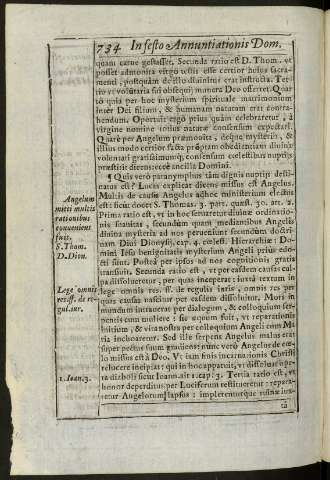 734 In festo Annuntiationis Dom.
quam carne gestasset. Secunda ratio est D. Thom. vt
posset admonita virgo testis esse certior huius sacra-
menti, postquam de illo diuinitus erat instructa. Ter-
tio vt voluntaria sui obsequij munera Deo offerret. Quar
to quia per hoc mysterium spirituale matrimonium
inter Dei filium, & humanam naturam erat contra-
hendum. Oportuit ergo prius quam celebraretur, à
virgine nomine totius naturæ consensum expectari.
Quare per Angelum præmonita, deque mysterijs, &
illius modo certior facta promptam obedientiam diuinæ
voluntati gratissimumq; consensum cœlestibus nuptijs
præstitit dicens: ecce ancilla Domini.
¶ Quis verò paranymphus tàm dignis nuptijs desti-
natus est? Lucas explicat dicens missus est Angelus.
Multis de causis Angelus ad hoc ministerium electus
est sicut docet S. Thomas. 3. part. quæst. 30. art. 2.
Prima ratio est, vt in hoc seruaretur diuinæ ordinatio-
nis suauitas, secundum quam medijs Angelis
diuina mysteria ad nos perueniunt secundùm doctri-
nam Diui Dionysij, cap. 4. cœlest. Hierarchiæ: Do-
mini Iesu benignitatis mysterium Angeli priùs edo-
cti sunt. Posteà per ipsos ad nos cognitionis gratia
transiuit. Secunda ratio est, vt per easdem causas cul-
pa dissolueretur, per quas inceperat: iuxtà textum in
lege omnis res ff. de regulis iuris, omnis res per
quas causas nascitur per easdem dissoluitur. Mors in
mundum intrauerat per dialogum, & colloquium ser-
pentis cum muliere: sic æquum fuit, vt reparationis
initium, & vita nostra per colloquium Angeli cum Ma
ria inchoaretur. Sed ille serpens Angelus malus erat
super pectus suum gradiens: nunc verò Angelus de cœ-
lo missus est à Deo. Vt iam finis incarnationis Christi
relucere incipiat: qui in hoc apparuit, vt dissolueret ope-
ra diaboli sicut Ioann. ait 1. cap. 3. Tertia ratio est, vt
honor deperditus per Luciferum restitueretur: repara-
retur Angelorum lapsus: implerenturque ruinæ iux-
ta
Angelum
mitti multis
rationibus
conueniens
fuit.
S. Thom.
D. Dion.
Lege omnis
res ff. de re-
gul. iur.
1. Ioan. 3.